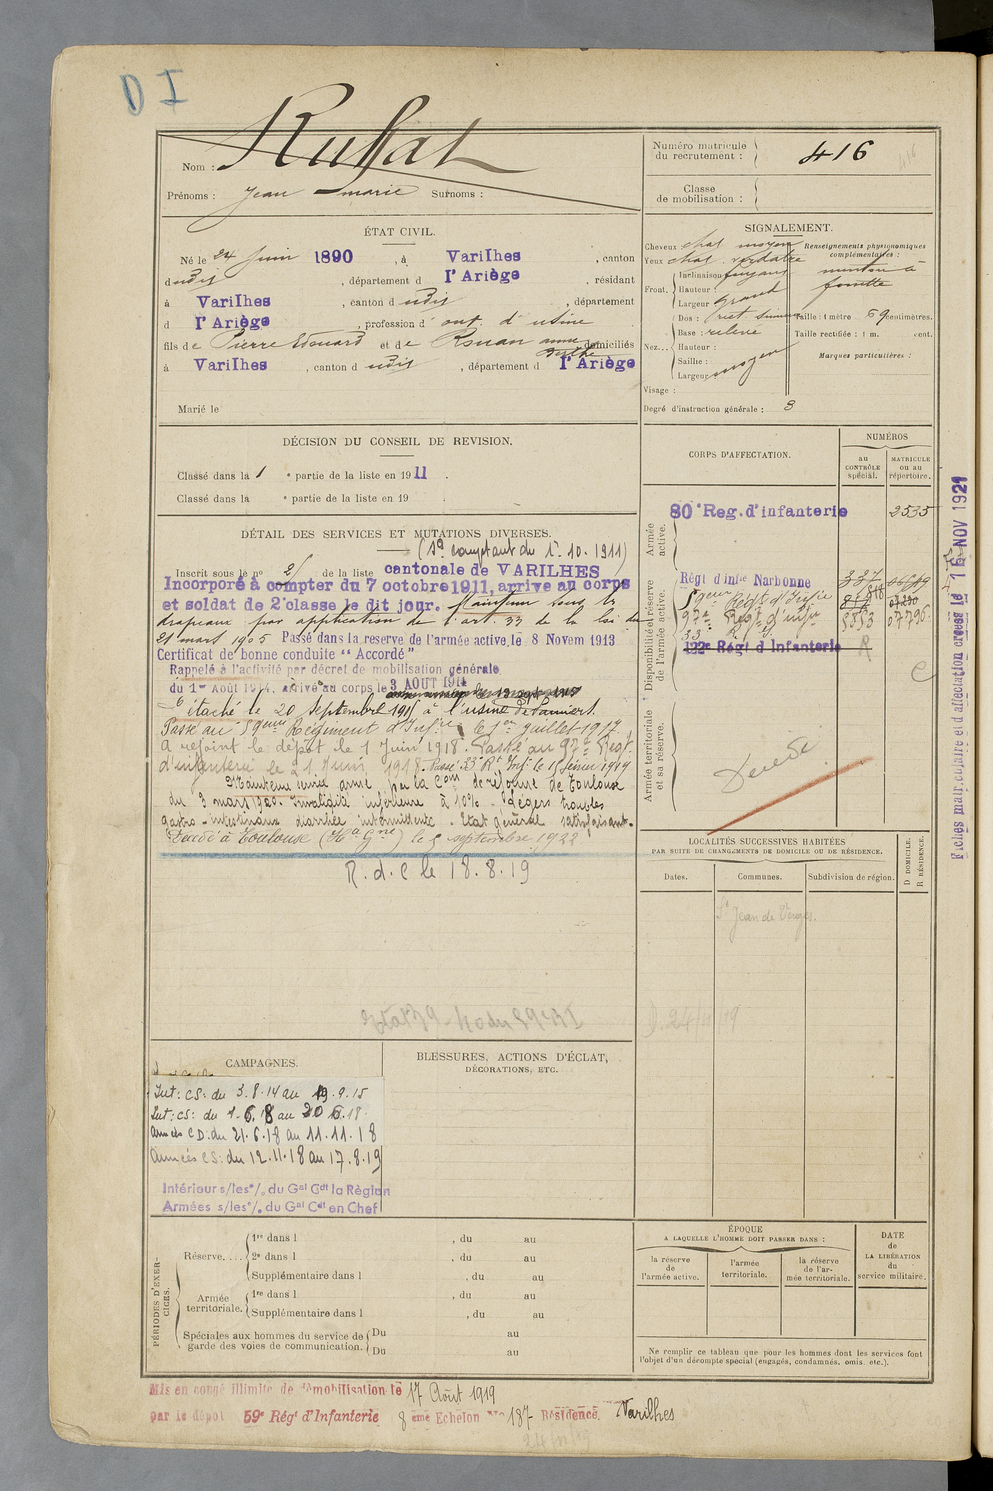 D I
Nom : Ruffat
Prénoms : Jean Marie Surnoms :
Numéro matricule du recrutement : 416
Classe de mobilisation :
ÉTAT CIVIL.
Né le 24 Juin 1890, à Varilhes, canton
dudit, département d l'Ariège, résidant
à Varilhes, canton dudit, département
d l'Ariège, profession d' ouv. d'usine
fils de Pierre Edouard et de Rouan anne domiciliés
à Varilhes, canton dudit, département d l'Ariège
Marié le
SIGNALEMENT.
Cheveux chat moyen
Yeux chat. verdatre
Front. Inclinaison fuyant
Hauteur :
Largeur grand
Nez... Dos : rect.
Base : relevé
Hauteur :
Saillie :
Largeur moyen
Visage :
Degré d'instruction générale : 3
Renseignements physionomiques complémentaires :
menton à
fossette
Taille : 1 mètre 69 centimètres.
Taille rectifiée : 1 m. cent.
Marques particulières :
DÉCISION DU CONSEIL DE REVISION.
Classé dans la 1e partie de la liste en 1911.
Classé dans la e partie de la liste en 19 .
DÉTAIL DES SERVICES ET MUTATIONS DIVERSES.
(1e comptant du 1er. 10. 1911)
Inscrit sous le no 2 de la liste cantonale de VARILHES
Incorporé à compter du 7 octobre 1911, arrive au corps
et soldat de 2e classe le dit jour. Maintenu sous les
drapeaux par application de l'art. 33 de la loi du
21 mars 1905 Passé dans la reserve de l'armée active, le 8 Novem 1913
Certificat de bonne conduite "Accordé"
Rappelé à l'activité par décret de mobilisation générale
du 1er Août 1914, arrivé au corps le 3 AOUT 1914
Détaché le 20 Septembre 1915 à l'usine de Pamiers.
Passé au 59eme Régiment d'Infie le 1er Juillet 1917
A rejoint le dépôt le 1 Juin 1918. Passé au 97e Regt
d'infanterie le 21 Juin 1918. Passé 33e Rt Inf. le 15 février 1919
Maintenu service armé par la Com de réforme de Toulouse
du 3 mars 1920. Invalidité inférieure à 10% - Légers troubles
gastro-intestinaux diarrhée intermittente. Etat général satisfaisant.
Décédé à Toulouse (Hte Gne) le 5 septembre 1922
R. d. C le 18. 8. 19
CORPS D'AFFECTATION.
NUMÉROS
au CONTRÔLE spécial.
MATRICULE ou au répertoire.
Armée active.
80e Reg. d'infanterie 2535
Disponibilité et réserve de l'armée active.
Régt d'infie Narbonne
59eme Régt d'Infie
97e Regt d'infie 5553 07796
33
122e Régt d'Infanterie R
C
Armée territoriale et sa réserve.
Décédé
Fiches matriculaire et d'affectation creées le 16 NOV 1921
LOCALITÉS SUCCESSIVES HABITÉES
PAR SUITE DE CHANGEMENTS DE DOMICILE OU DE RÉSIDENCE.
Dates. Communes. Subdivision de région. D DOMICILE. R RÉSIDENCE.
St Jean de Verges.
CAMPAGNES.
Int : CS : du 3.8.14 au 19.9.15
Int : CS : du 1.6.18 au 20 6.18
Armées CD : du 21.6.18 au 11.11.18
Armées CS : du 12.11.18 au 17.8.19
Intérieur s/les o/. du Gal Cdt la Règion
Armées s/les o/. du Gal Cdt en Chef
BLESSURES, ACTIONS D'ÉCLAT,
DÉCORATIONS, ETC.
PÉRIODES D'EXERCICES.
Réserve.... 1re dans l , du au
2e dans l , du au
Supplémentaire dans l , du au
Armée territoriale. 1re dans l , du au
Supplémentaire dans l , du au
Spéciales aux hommes du service de garde des voies de communication. Du au
Du au
ÉPOQUE
A LAQUELLE L'HOMME DOIT PASSER DANS :
la réserve de l'armée active.
l'armée territoriale.
la réserve de l'armée territoriale.
DATE de LA LIBÉRATION du service militaire.
Ne remplir ce tableau que pour les hommes dont les services font
l'objet d'un décompte spécial (engagés, condamnés, omis, etc.).
Mis en congé illimité de démobilisation le 17 Août 1919
par le dépôt 59e Régt d'Infanterie 8eme Echelon No 187 Résidence. Varilhes